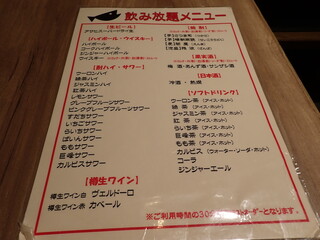 飲み放題メニュー
【生ビール】
アサヒスーパードライ生
【ハイボール・ウイスキー】
ハイボール
コークハイボール
ジンジャーハイボール
ウイスキー
【酎ハイ・サワー】
ウーロンハイ
緑茶ハイ
ジャスミンハイ
紅茶ハイ
レモンサワー
グレープフルーツサワー
ピンクグレープフルーツサワー
すだちサワー
いちごサワー
らいちサワー
ももサワー
巨峰サワー
カルピスサワー
【樽生ワイン】
樽生ワイン白 ヴェルドーロ
樽生ワイン赤 カベール
【焼酎】
【果実酒】
梅酒・あんず酒・ザンザシ酒
【日本酒】
冷酒・熱燗
【ソフトドリンク】
ウーロン茶 (アイス・ホット)
緑茶 (アイス・ホット)
ジャスミン茶 (アイス・ホット)
紅茶 (アイス・ホット)
らいち茶 (アイス・ホット)
巨峰茶 (アイス・ホット)
もも茶 (アイス・ホット)
カルピス (ウォーター・ソーダ・ホット)
コーラ
ジンジャーエール
※ご利用時間の30
オーダーとなります。